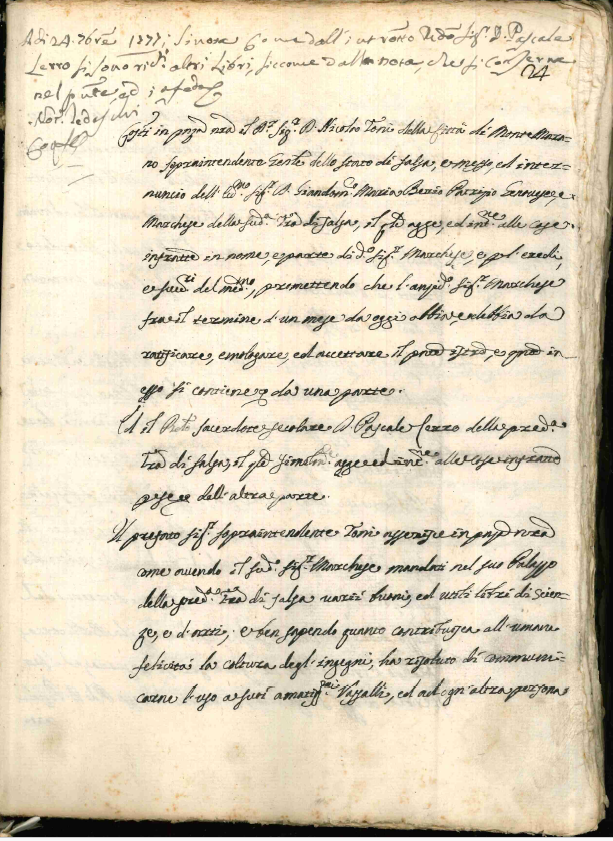 Adi 24. 7bre 1777; si nota come dall' int.rotto Rdo Sig.r D. Pascale
Cerro si sono altri Libri, siccome dalla nota, che si conserva
24
nel ad fede
Not.r Tedeschi
Costi in pnza nra il Sig.r D. Nicolò Toni della Città di Monte Mara=
no sopraintendente Gente dello stato di Salza, e messo, ed inter=
nuncio dell' Sig.r D. Giandom.co Maria Berio Patrizio Genovese, e
Marchese della sud.a Tra di Salza, il qle agge, ed alle cose
infratte in nome e parte di d.o Sig.r Marchese, e p l' eredi,
e succ.ri del med.mo, promettendo che l' Sig.r Marchese
fra il termine d' un mese da oggi abbia, e debbia da
ratificare, emologare, ed accettare il pnte istro, e quto in
esso si contiene da una parte.
Ed il Sacerdote secolare D. Pascale Cerro della pred.a
Tra di Salza, il qle simelm.te agge ed alle cose infratte
dell' altra parte.
Il presato Sig.r sopraintendente Toni asserisce in nra
come avendo il sud.o Sig.r Marchese mandati nel suo Palazzo
della pred.a Tra di Salza varii buoni, ed utili libri di scien=
ze, e d' arti; e ben sapendo quanto contribuisca all' umana
felicità la coltura degl' ingegni, ha risoluto di communi=
carne l' uso a suoi amatiss.mi Vassalli, ed ad ogn' altra persona